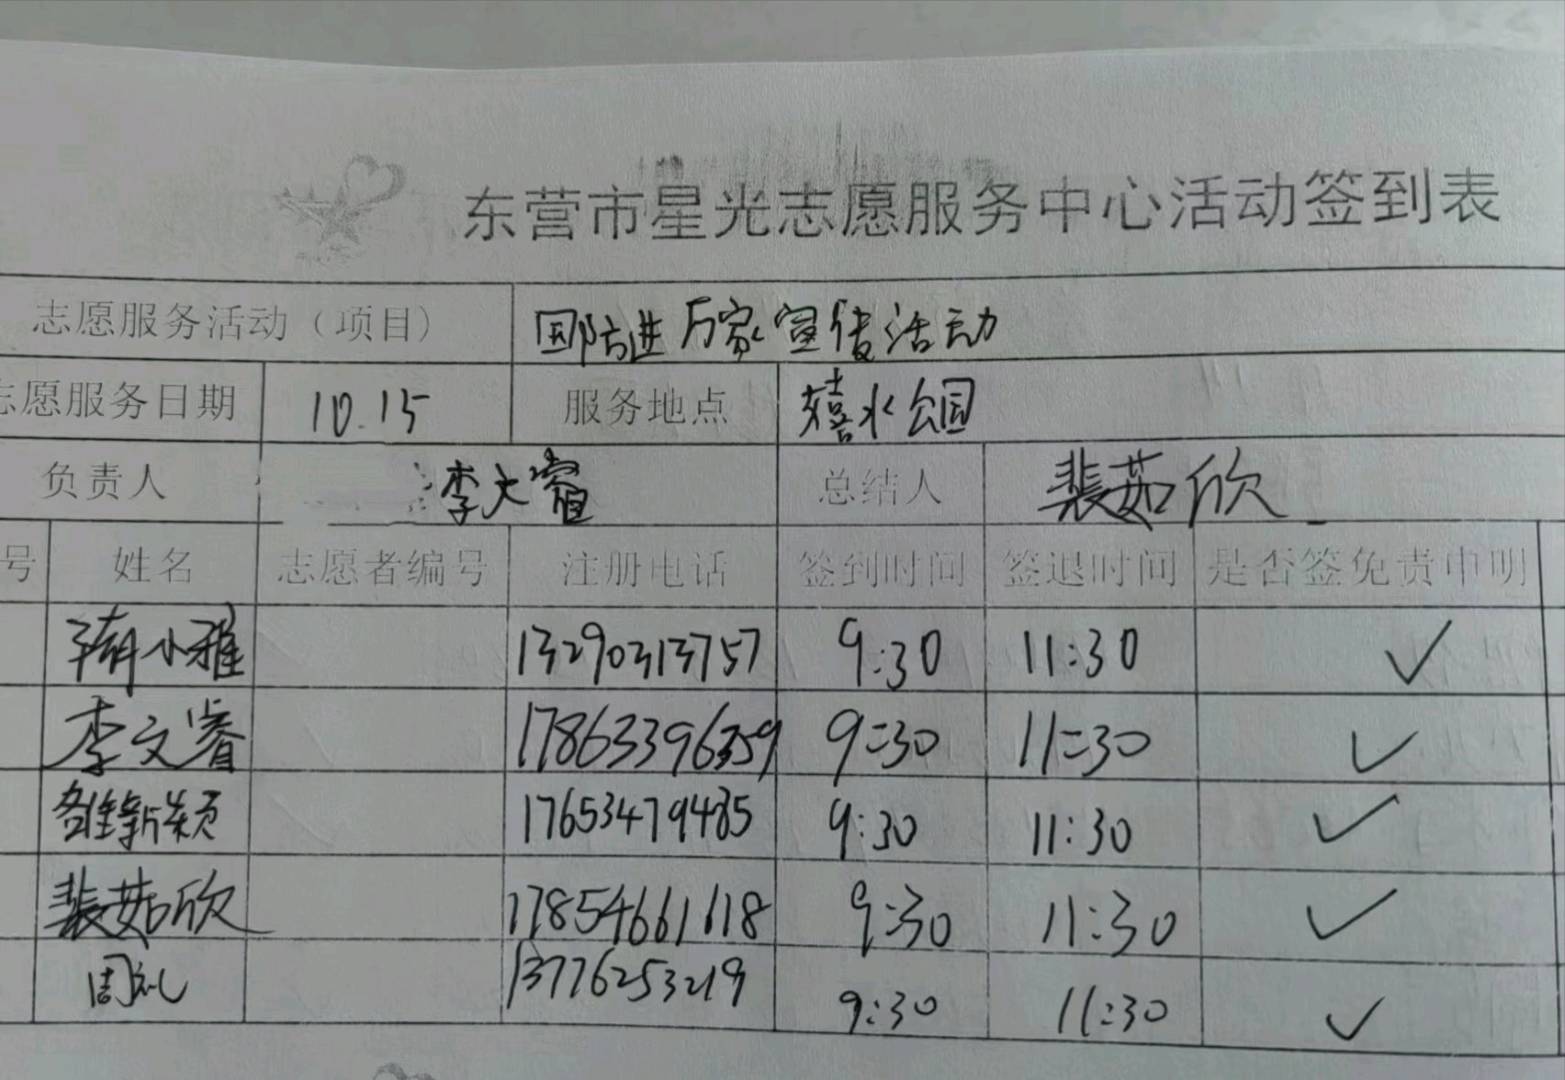 东营市星光志愿服务中心活动签到表
志愿服务活动（项目） 国防进万家宣传活动
志愿服务日期 10.15 服务地点 嬉水公园
负责人 李文睿 总结人 裴茹欣
号 姓名 志愿者编号 注册电话 签到时间 签退时间 是否签免责申明
小雅 13290313757 9:30 11:30 ✓
李文睿 17863396359 9:30 11:30 ✓
新颖 17653479485 9:30 11:30 ✓
裴茹欣 17854661618 9:30 11:30 ✓
周礼 13776253219 9:30 11:30 ✓